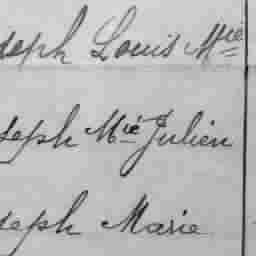 oseph Louis Mie
oseph Mié Julien
oseph Marie